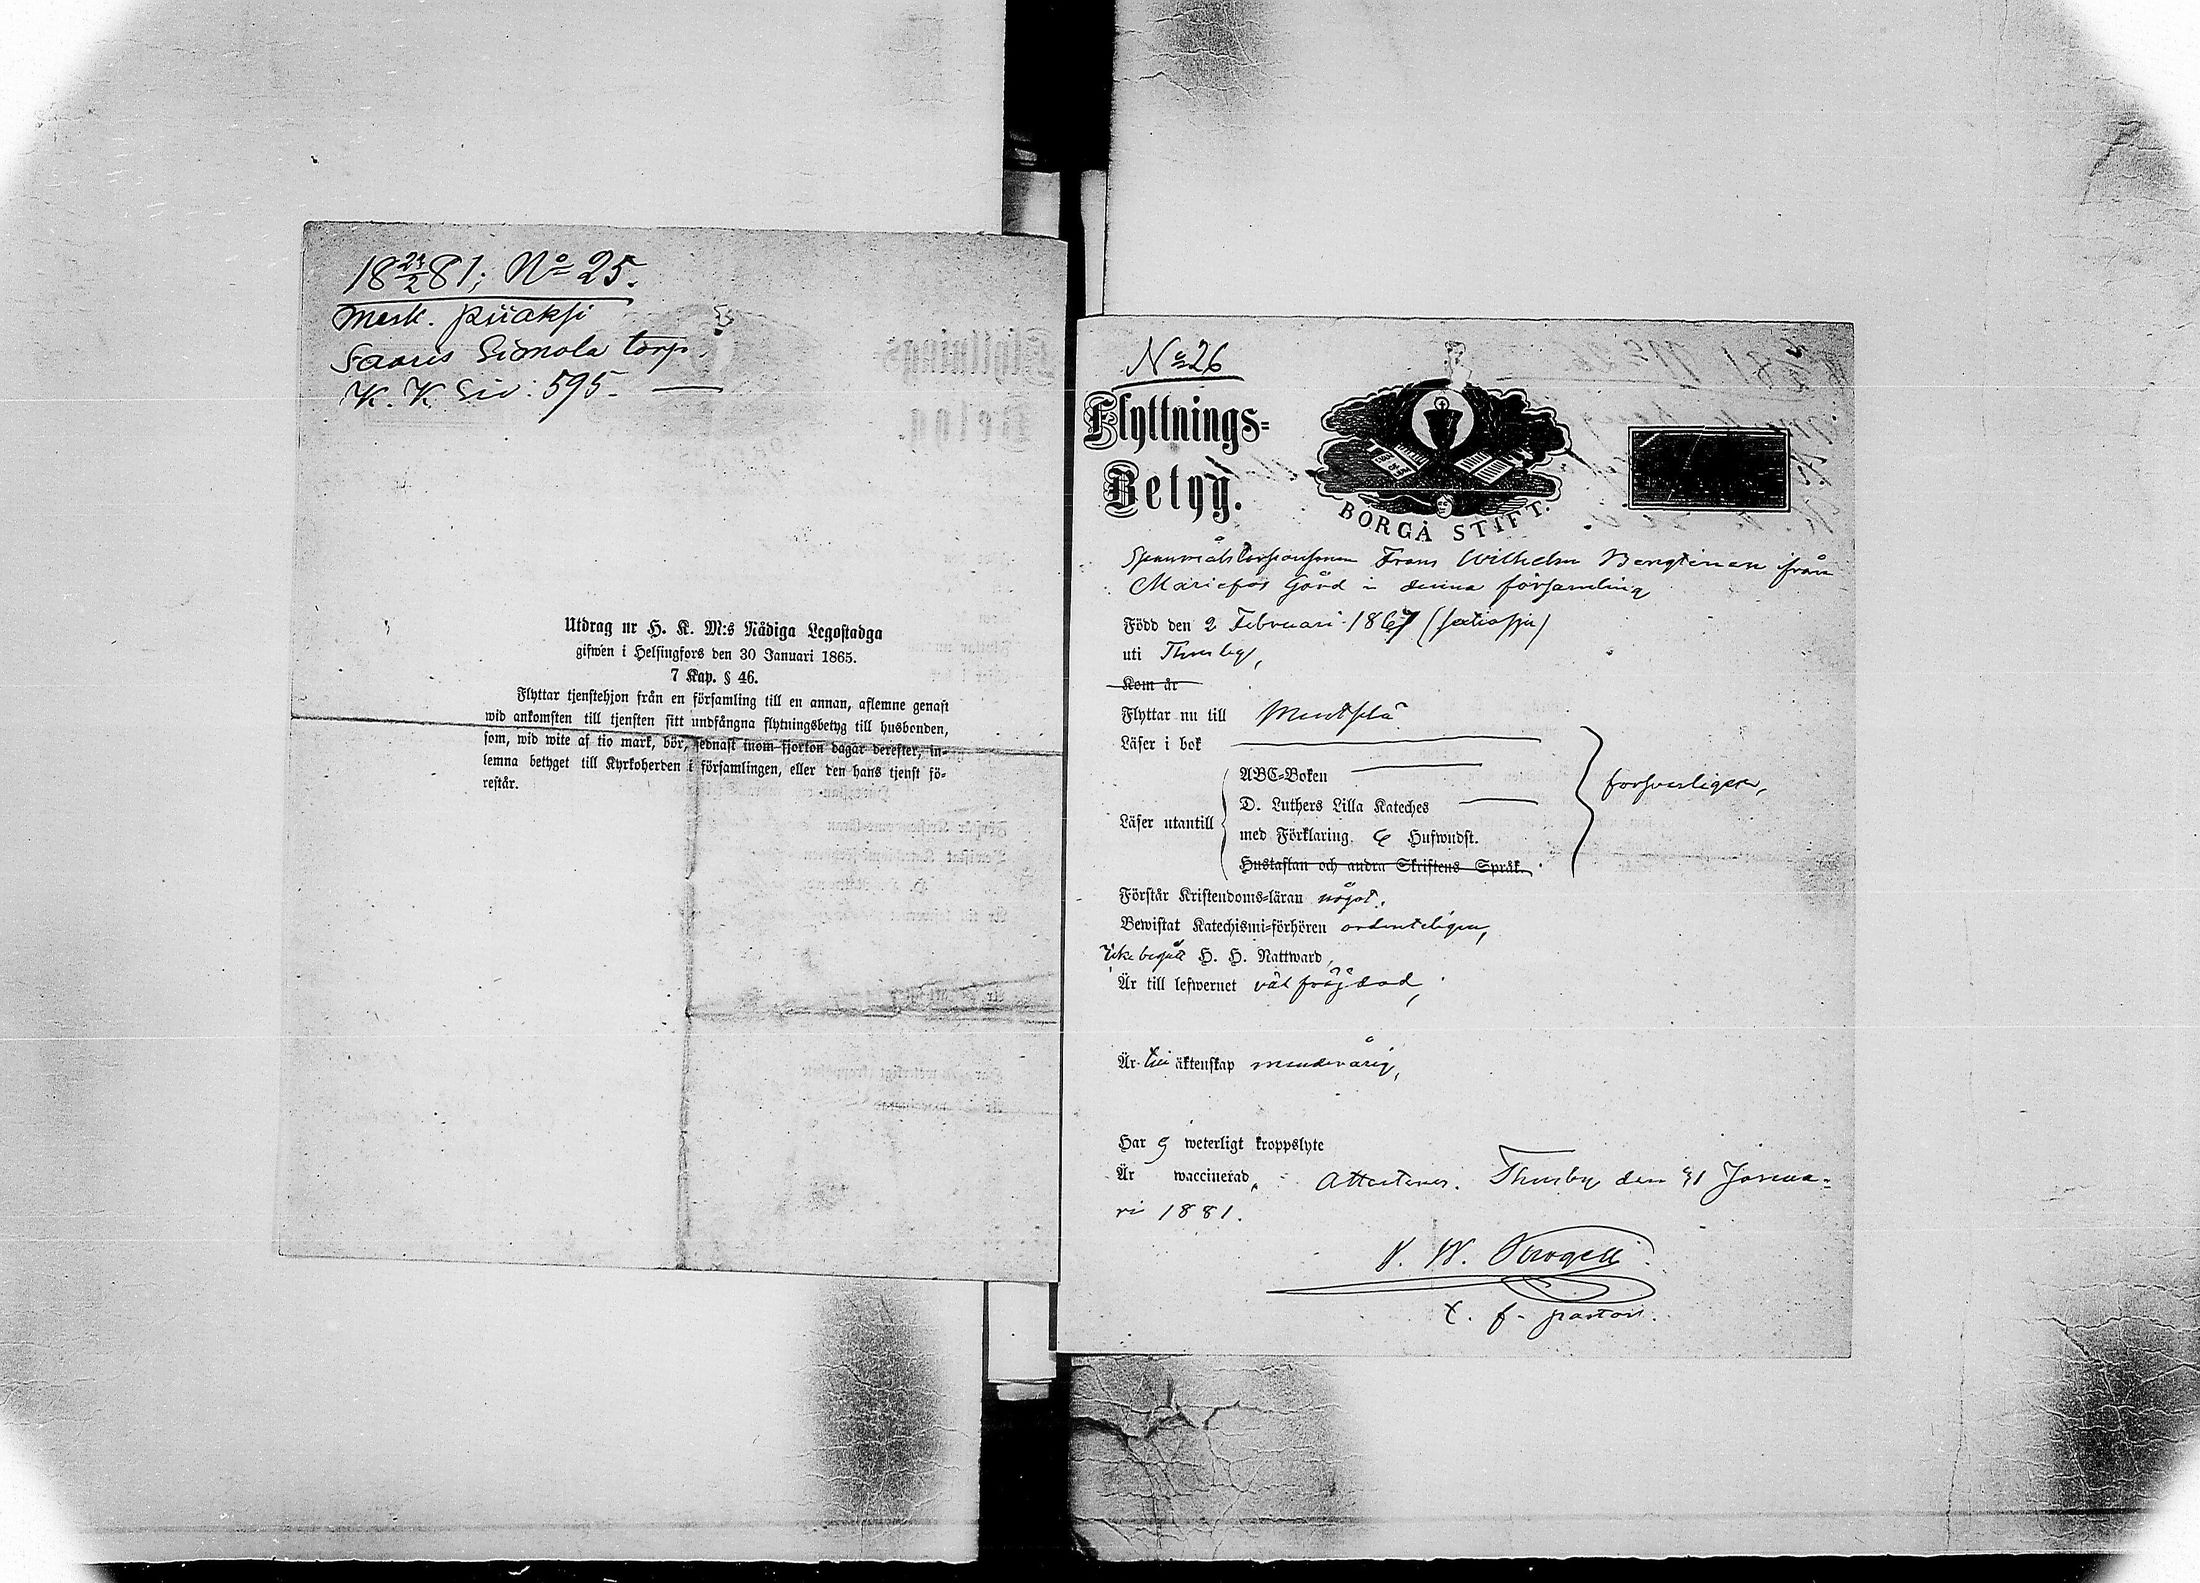 18 24/2 81; No 25.
Mesk. Piiaksi
Saaris Simola torp.
K. K. Sid: 595.
Utdrag ur H. K. M:s Nådiga Legostadga
gifwen i Helsingfors den 30 Januari 1865.
7 Kap. § 46.
Flyttar tjenstehjon från en församling till en annan, aflemne genast
wid ankomsten till tjensten sitt undfångna flyttningsbetyg till husbonden,
som, wid wite af tio mark, bör, sednast inom fjorton dagar derefter, in-
lemna betyget till Kyrkoherden i församlingen, eller den hans tjenst fö-
restår.
No 26
Flyttnings-
Betyg.
BORGÅ STIFT.
Frans Wilhelm Bengtinen från
Mariefors Gård i denna församling
Född den 2 Februari 1867
uti Thusby,
Kom år
Flyttar nu till Mentsälä
Läser i bok
ABC-Boken
D. Luthers Lilla Kateches
Läser utantill
med Förklaring. & Hufwudst.
Hustaflan och andra Skriftens Språk.
försvarligen,
Förstår Kristendoms-läran något.
Bewistat Katechismi-förhören ordenteligen,
Icke begått H. H. Nattward,
Är till lefwernet väl frägdad,
Är till äktenskap minderårig,
Har ej weterligt kroppslyte
Är waccinerad, Attesterar. Thusby den 31 Janua-
ri 1881.
t. f. pastor.